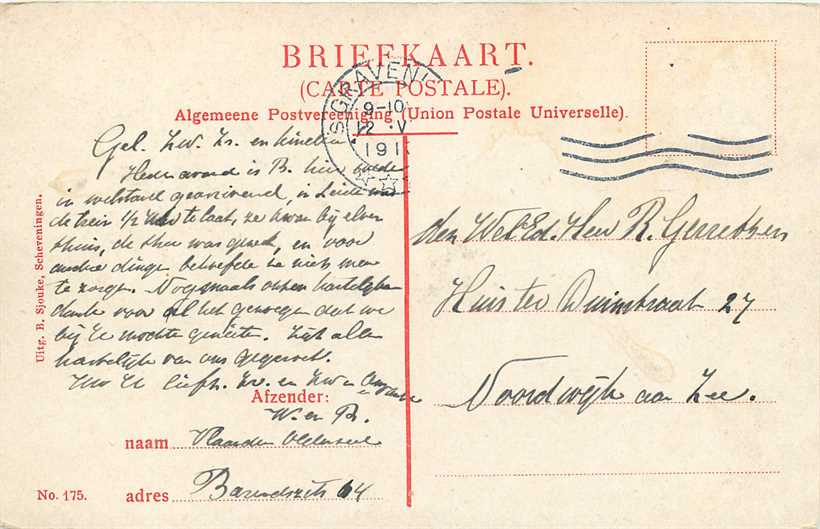 BRIEFKAART.
(CARTE POSTALE).
Algemeene Postvereeniging (Union Postale Universelle).
'SGRAVENH
9-10
12 V
191
Gel. Zw. Zr. en kinderen
Heden avond is B. hier goede
in welstand gearriveerd, in Leide was
de trein 1/2 uur te laat, ze kwam bij elven
thuis, de thee was gereed, en voor
andere dingen behoefde ze niets meer
te zorgen. Nogmaals onzen hartelijken
dank voor al het genoegen dat we
bij U mochten genieten. Zijt allen
hartelijk van ons gegroet.
Uw U liefh. Zr. en Zw. en
W. en B.
Afzender:
naam Vlaanderen
adres Barendszstr 64
den WelEd. Heer R. Gerretsen
Huis ter Duinstraat 27
Noordwijk aan Zee.
Uitg. B. Sjouke, Scheveningen.
No. 175.